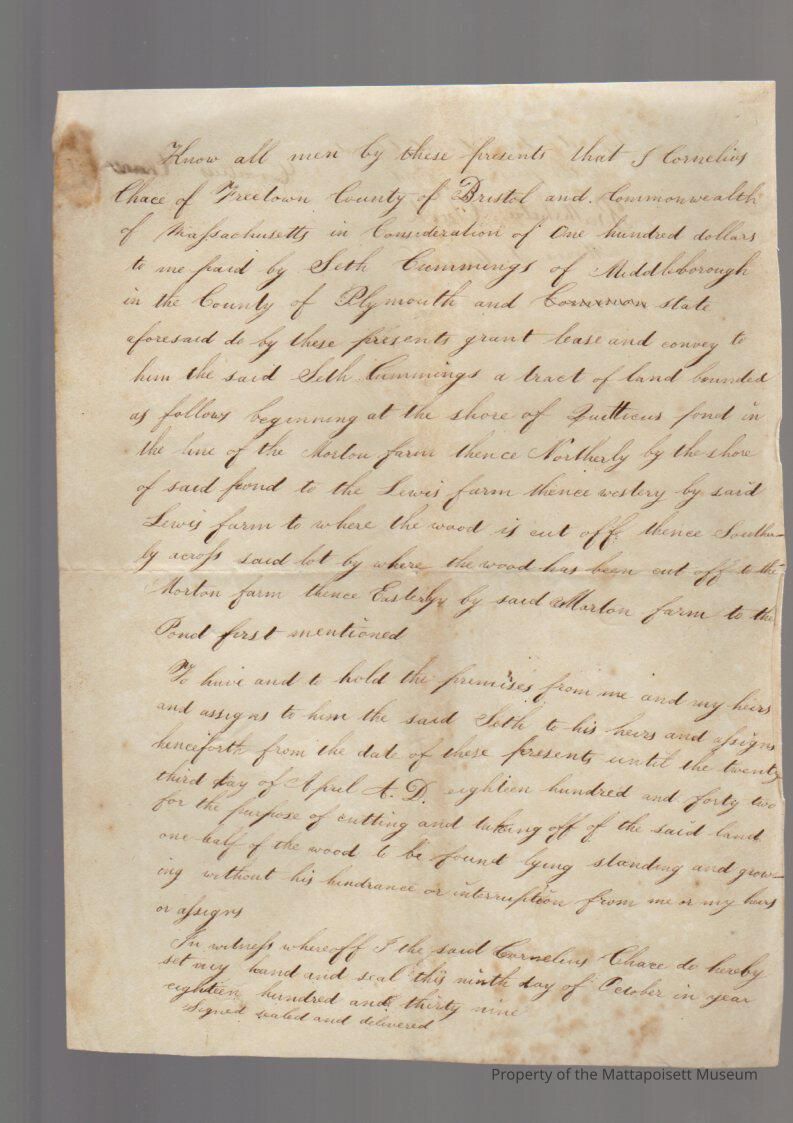 Know all men by these presents that I Cornelius
Chace of Freetown County of Bristol and Commonwealth
of Massachusetts in Consideration of One hundred dollars
to me paid by Seth Cummings of Middleborough
in the County of Plymouth and Common state
aforesaid do by these presents grant lease and convey to
him the said Seth Cummings a tract of land bounded
as follows beginning at the shore of Quitticus pond in
the line of the Morton farm thence Northerly by the shore
of said pond to the Lewis farm thence westery by said
Lewis farm to where the wood is cut off thence Souther-
ly across said lot by where the wood has been cut off to the
Morton farm thence Easterly by said Morton farm to the
Pond first mentioned
To have and to hold the premises from me and my heirs
and assigns to him the said Seth to his heirs and assigns
henceforth from the date of these presents until the twenty
third day of April A. D. eighteen hundred and forty two
for the purpose of cutting and taking off of the said land
one half of the wood to be found lying standing and grow-
ing without his hindrance or interruption from me or my heirs
or assigns
In witness whereoff I the said Cornelius Chace do hereby
set my hand and seal this ninth day of October in year
eighteen hundred and thirty nine
Signed sealed and delivered
Property of the Mattapoisett Museum